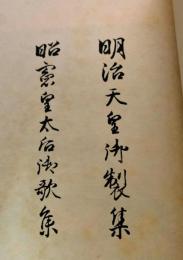 明治天皇御製集
昭憲皇太后御歌集